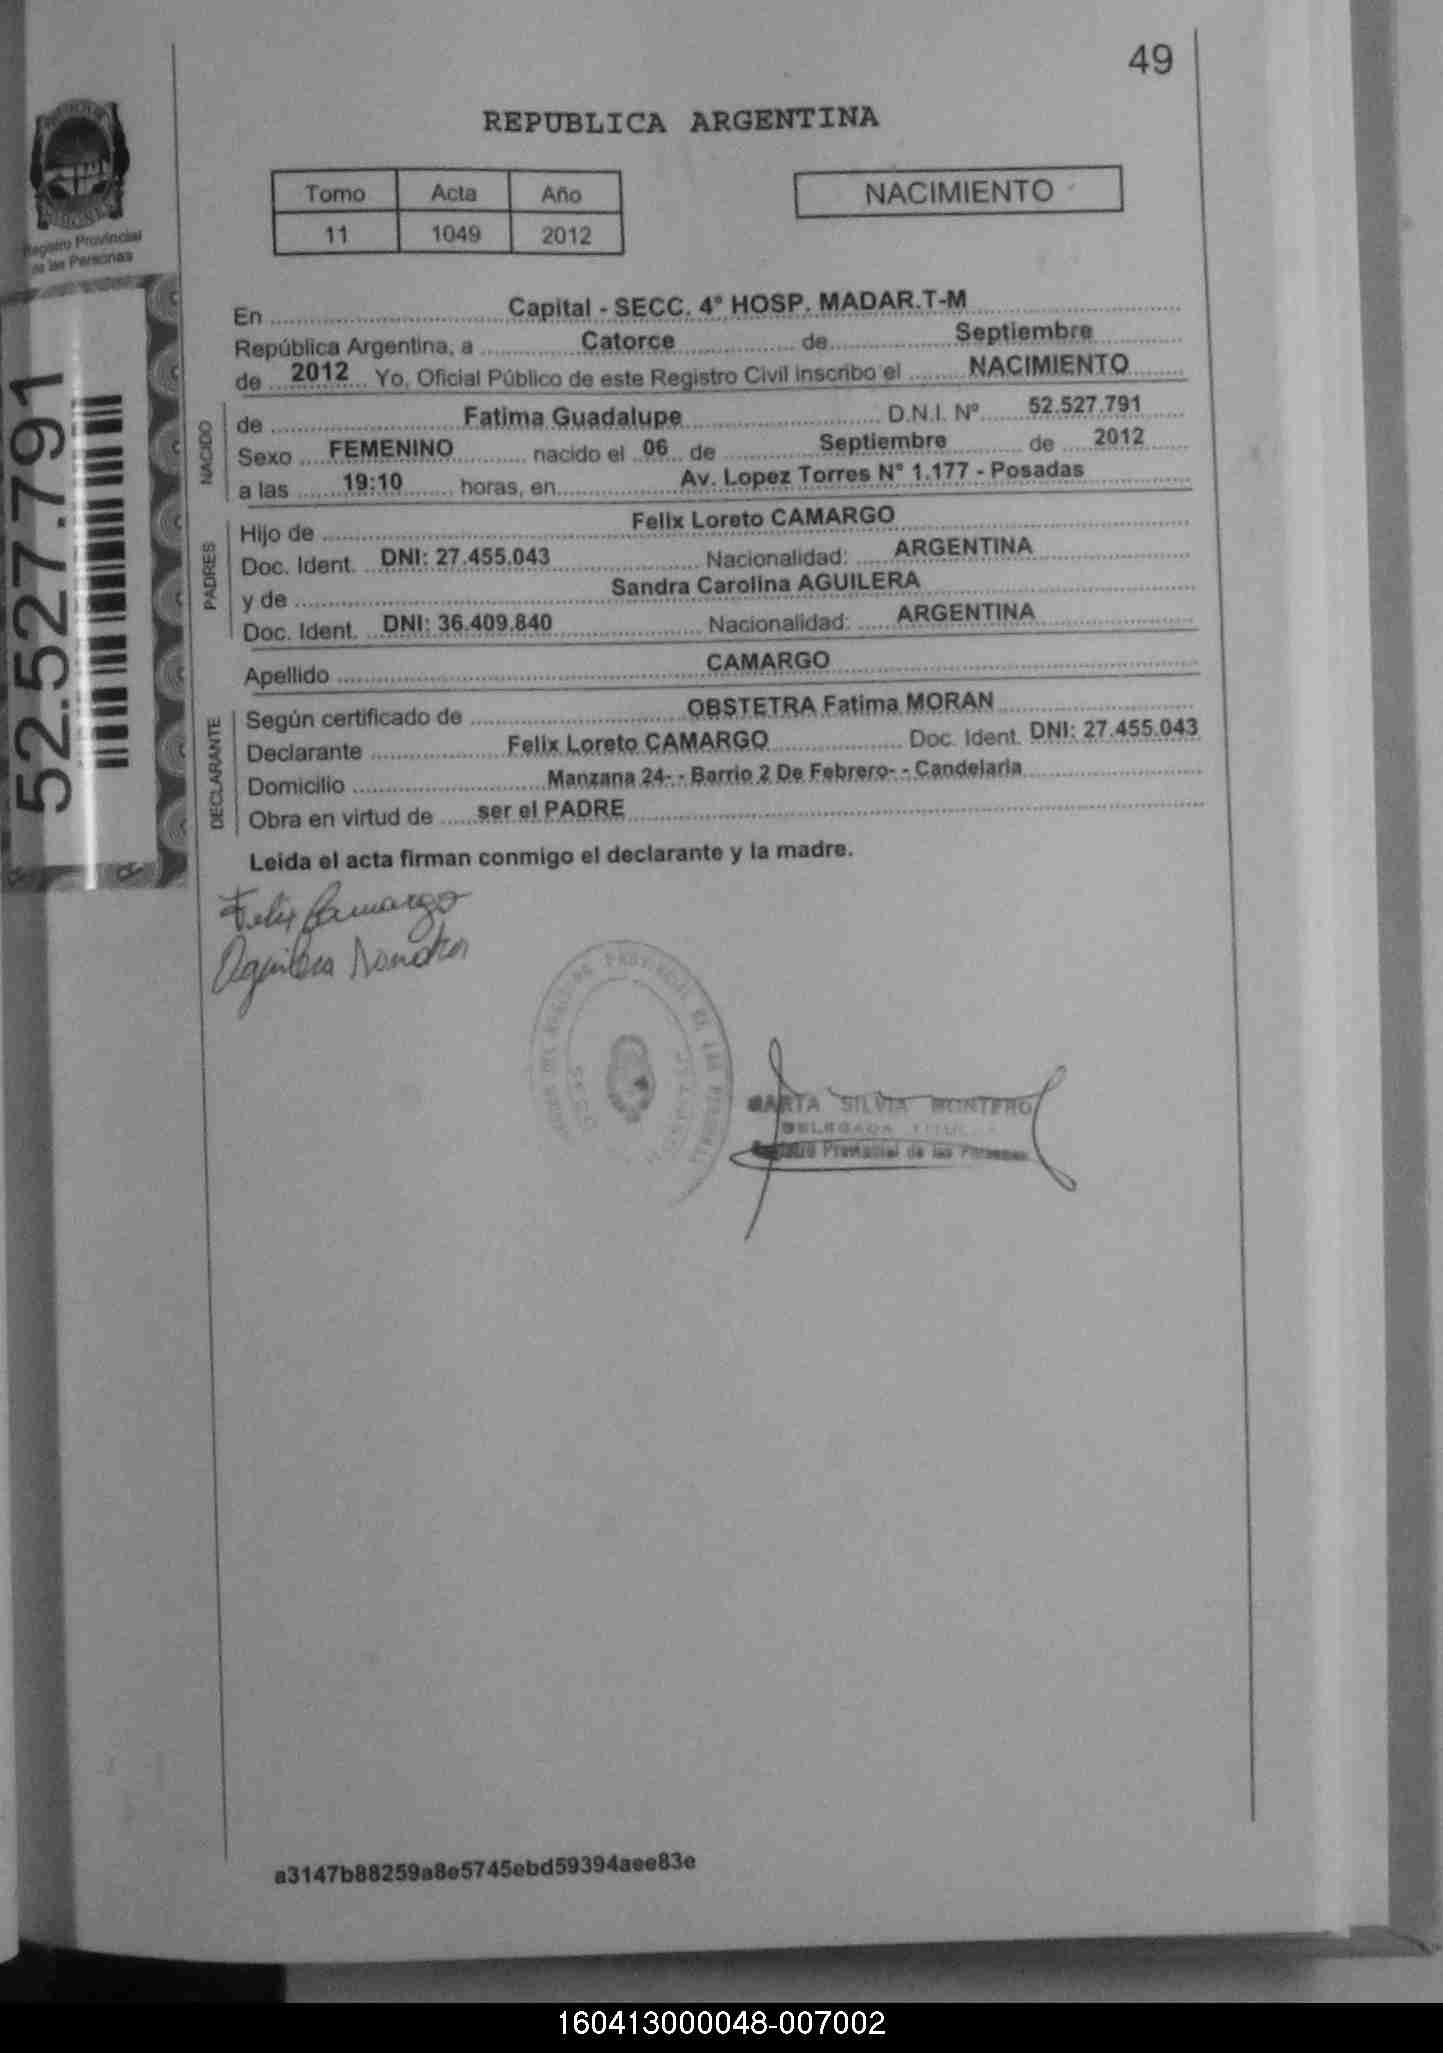 49
REPUBLICA ARGENTINA
Registro Provincial
de las Personas
Tomo Acta Año
11 1049 2012
NACIMIENTO
52.527.791
En Capital - SECC. 4° HOSP. MADAR.T-M
República Argentina, a Catorce de Septiembre
de 2012 Yo, Oficial Público de este Registro Civil inscribo el NACIMIENTO
NACIDO
de Fatima Guadalupe D.N.I. Nº 52.527.791
Sexo FEMENINO nacido el 06 de Septiembre de 2012
a las 19:10 horas, en Av. Lopez Torres N° 1.177 - Posadas
PADRES
Hijo de Felix Loreto CAMARGO
Doc. Ident. DNI: 27.455.043 Nacionalidad: ARGENTINA
y de Sandra Carolina AGUILERA
Doc. Ident. DNI: 36.409.840 Nacionalidad: ARGENTINA
Apellido CAMARGO
DECLARANTE
Según certificado de OBSTETRA Fatima MORAN
Declarante Felix Loreto CAMARGO Doc. Ident. DNI: 27.455.043
Domicilio Manzana 24- - Barrio 2 De Febrero- - Candelaria
Obra en virtud de ser el PADRE
Leida el acta firman conmigo el declarante y la madre.
Felix Camargo
Aguilera Sandra
PROVINCIAL DE LAS
MARTA SILVIA MONTERO
DELEGADA
Registro Provincial de las Personas
a3147b88259a8e5745ebd59394aee83e
160413000048-007002